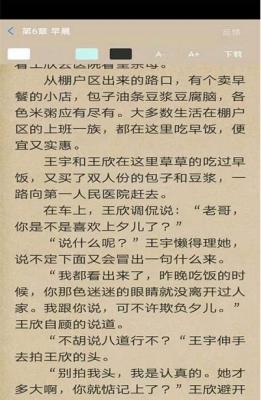 第6章 早晨
反馈
A-
A+
下载
看王欣去医院看望亲母。
从棚户区出来的路口，有个卖早
餐的小店，包子油条豆浆豆腐脑，各
色米粥应有尽有。大多数生活在棚户
区的上班一族，都在这里吃早饭，便
宜又实惠。
王宇和王欣在这里草草的吃过早
饭，又买了双人份的包子和豆浆，一
路向第一人民医院赶去。
在车上，王欣调侃说：“老哥，
你是不是喜欢上夕儿了？”
“说什么呢？”王宇懒得理她，
说不定下面又会冒出一句什么来。
“我都看出来了，昨晚吃饭的时
候，你那色迷迷的眼睛就没离开过人
家。我跟你说，可不许欺负夕儿。”
王欣自顾的说道。
“不胡说八道行不？”王宇伸手
去拍王欣的头。
“别拍我头，我是认真的。她才
多大啊，你就惦记上了？”王欣避开